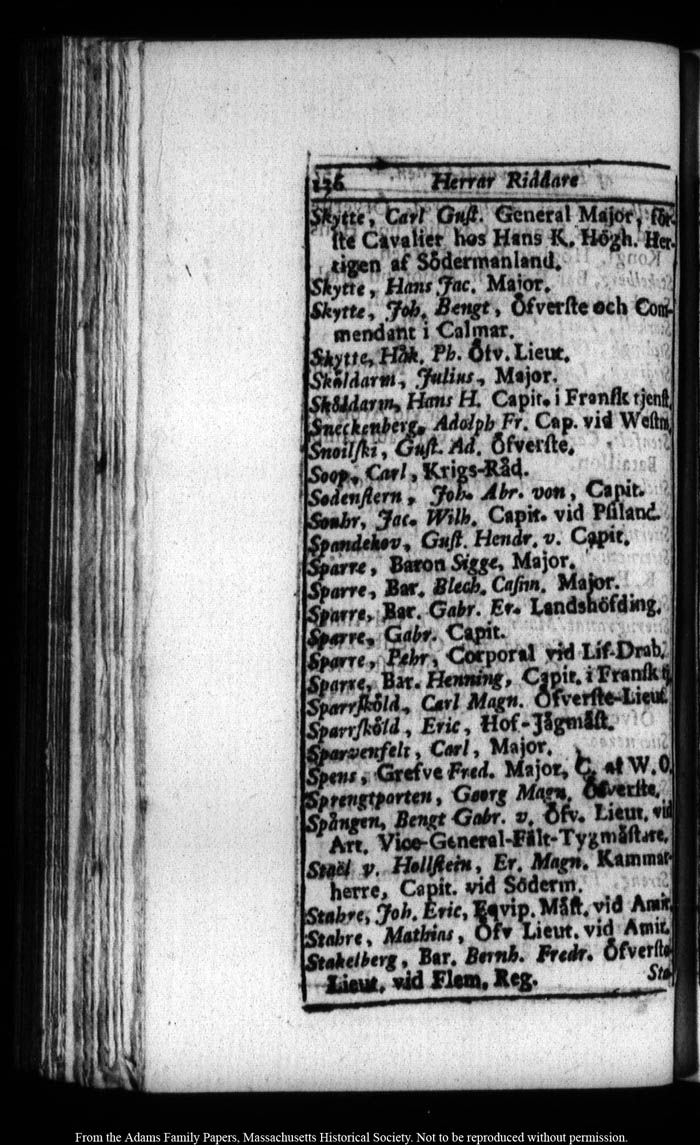 136 Herrar Riddare
Skytte, Carl Gust. General Major, för-
ste Cavalier hos Hans K. Högh. Her-
tigen af Södermanland.
Skytte, Hans Jac. Major.
Skytte, Joh. Bengt, Öfverste och Com-
mendant i Calmar.
Skytte, Håk. Ph. Öfv. Lieut.
Sköldarm, Julius, Major.
Sköldarm, Hans H. Capit. i Fransk tjenst.
Sneckenberg, Adolph Fr. Cap. vid Westm.
Snoilski, Gust. Ad. Öfverste.
Soop, Carl, Krigs-Råd.
Sodenstern, Joh. Abr. von, Capit.
Souhr, Jac. Wilh. Capit. vid Psiland.
Spandekov, Gust. Hendr. v. Capit.
Sparre, Baron Sigge, Major.
Sparre, Bar. Blech. Casim. Major.
Sparre, Bar. Gabr. Er. Landshöfding.
Sparre, Gabr. Capit.
Sparre, Pehr, Corporal vid Lif-Drab.
Sparre, Bar. Henning, Capit. i Fransk tj.
Sparrsköld, Carl Magn. Öfverste-Lieut.
Sparrsköld, Eric, Hof-Jägmäst.
Sparvenfelt, Carl, Major.
Spens, Grefve Fred. Major, C. af W. O.
Sprengtporten, Georg Magn. Öfverste.
Spången, Bengt Gabr. v. Öfv. Lieut. vid
Art. Vice-General-Fält-Tygmästare.
Staël v. Hollstein, Er. Magn. Kammar-
herre, Capit. vid Söderm.
Stahre, Joh. Eric, Eqvip. Mäst. vid Amir.
Stahre, Mathias, Öfv Lieut. vid Amir.
Stakelberg, Bar. Bernh. Fredr. Öfverste
Lieut. vid Flem. Reg.
Sta
From the Adams Family Papers, Massachusetts Historical Society. Not to be reproduced without permission.